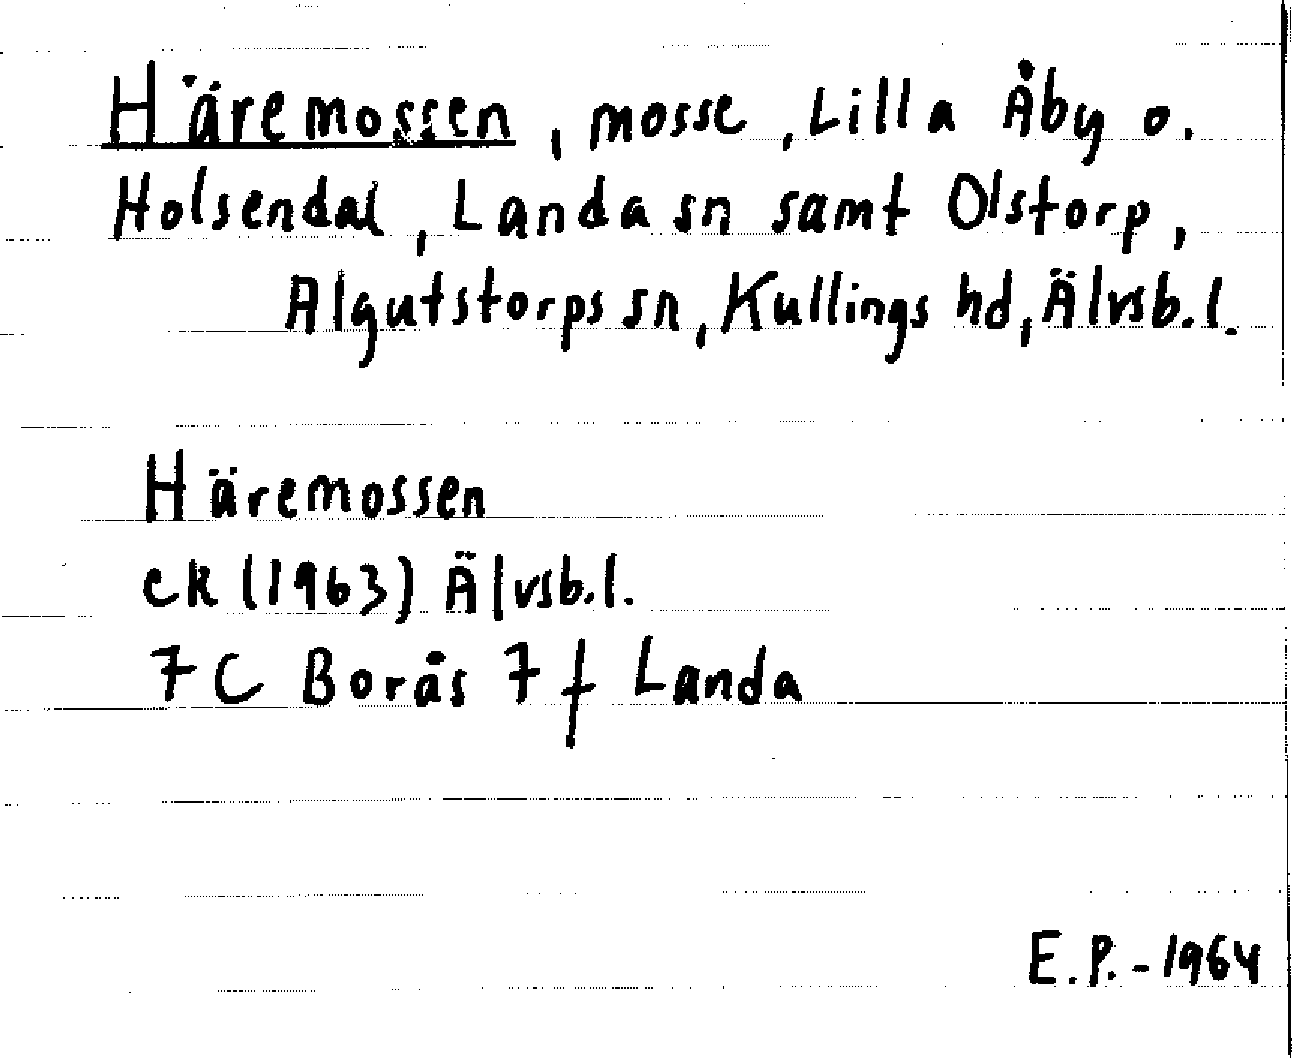 Häremossen, mosse, Lilla Åby o.
Holsendal, Landa sn samt Olstorp,
Algutstorps sn, Kullings hd, Älvsb.l.
Häremossen
ek (1963) Älvsb.l.
7C Borås 7f Landa
E.P.-1964